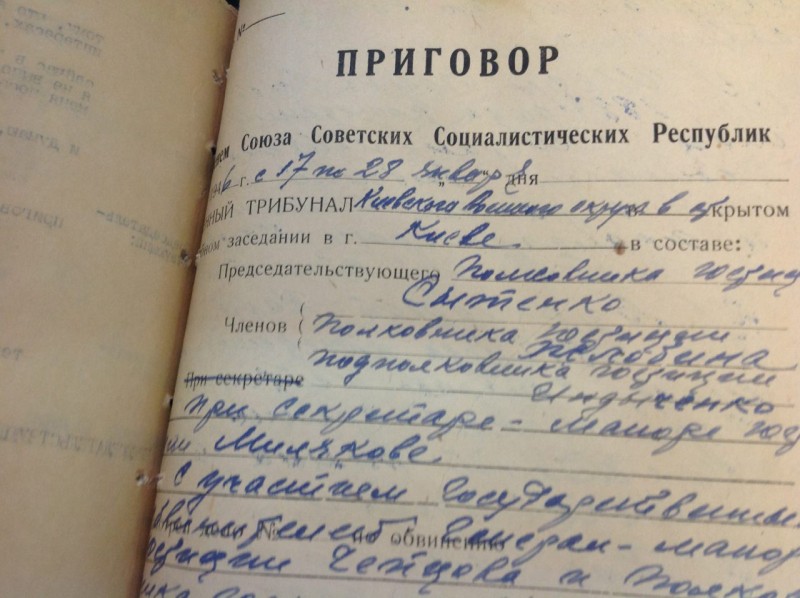 №
ПРИГОВОР
нем Союза Советских Социалистических Республик
6 г. с 17 по 28 января дня
ный ТРИБУНАЛ Киевского Военного округа в открытом
ном заседании в г. Киеве в составе:
Председательствующего полковника юстиц
Сытенко
Членов полковника юстиции
подполковника юстиции
При секретаре
Индыченко
при секретаре - майоре юст
ии Милякове
с участием государственны
по обвинению
генерал - майор
юстиции Чепцова и полков